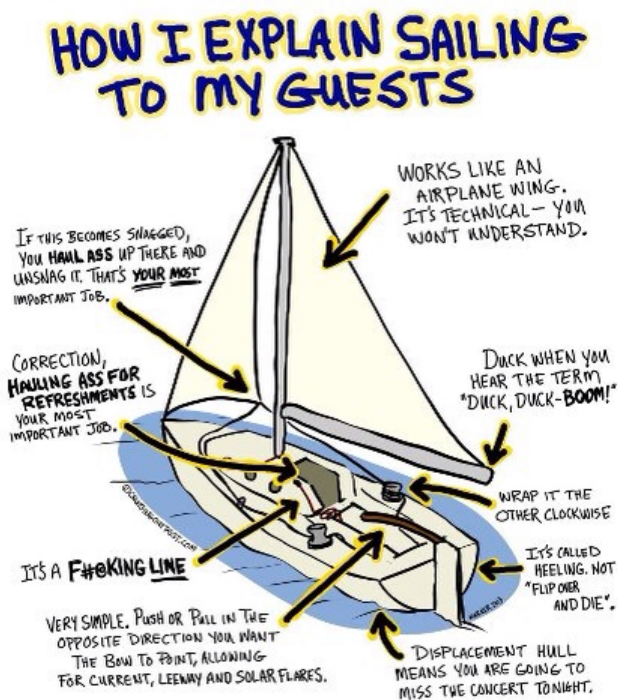 HOW I EXPLAIN SAILING
TO MY GUESTS
WORKS LIKE AN
AIRPLANE WING.
IT'S TECHNICAL— YOU
WON'T UNDERSTAND.
IF THIS BECOMES SNAGGED,
YOU HAUL ASS UP THERE AND
UNSNAG IT. THAT'S YOUR MOST
IMPORTANT JOB.
CORRECTION,
HAULING ASS FOR
REFRESHMENTS IS
YOUR MOST
IMPORTANT JOB.
DUCK WHEN YOU
HEAR THE TERM
"DUCK, DUCK-BOOM!"
WRAP IT THE
OTHER CLOCKWISE
IT'S A F#@KING LINE
IT'S CALLED
HEELING. NOT
"FLIP OVER
AND DIE".
VERY SIMPLE. PUSH OR PULL IN THE
OPPOSITE DIRECTION YOU WANT
THE BOW TO POINT, ALLOWING
FOR CURRENT, LEEWAY AND SOLAR FLARES.
DISPLACEMENT HULL
MEANS YOU ARE GOING TO
MISS THE CONCERT TONIGHT.